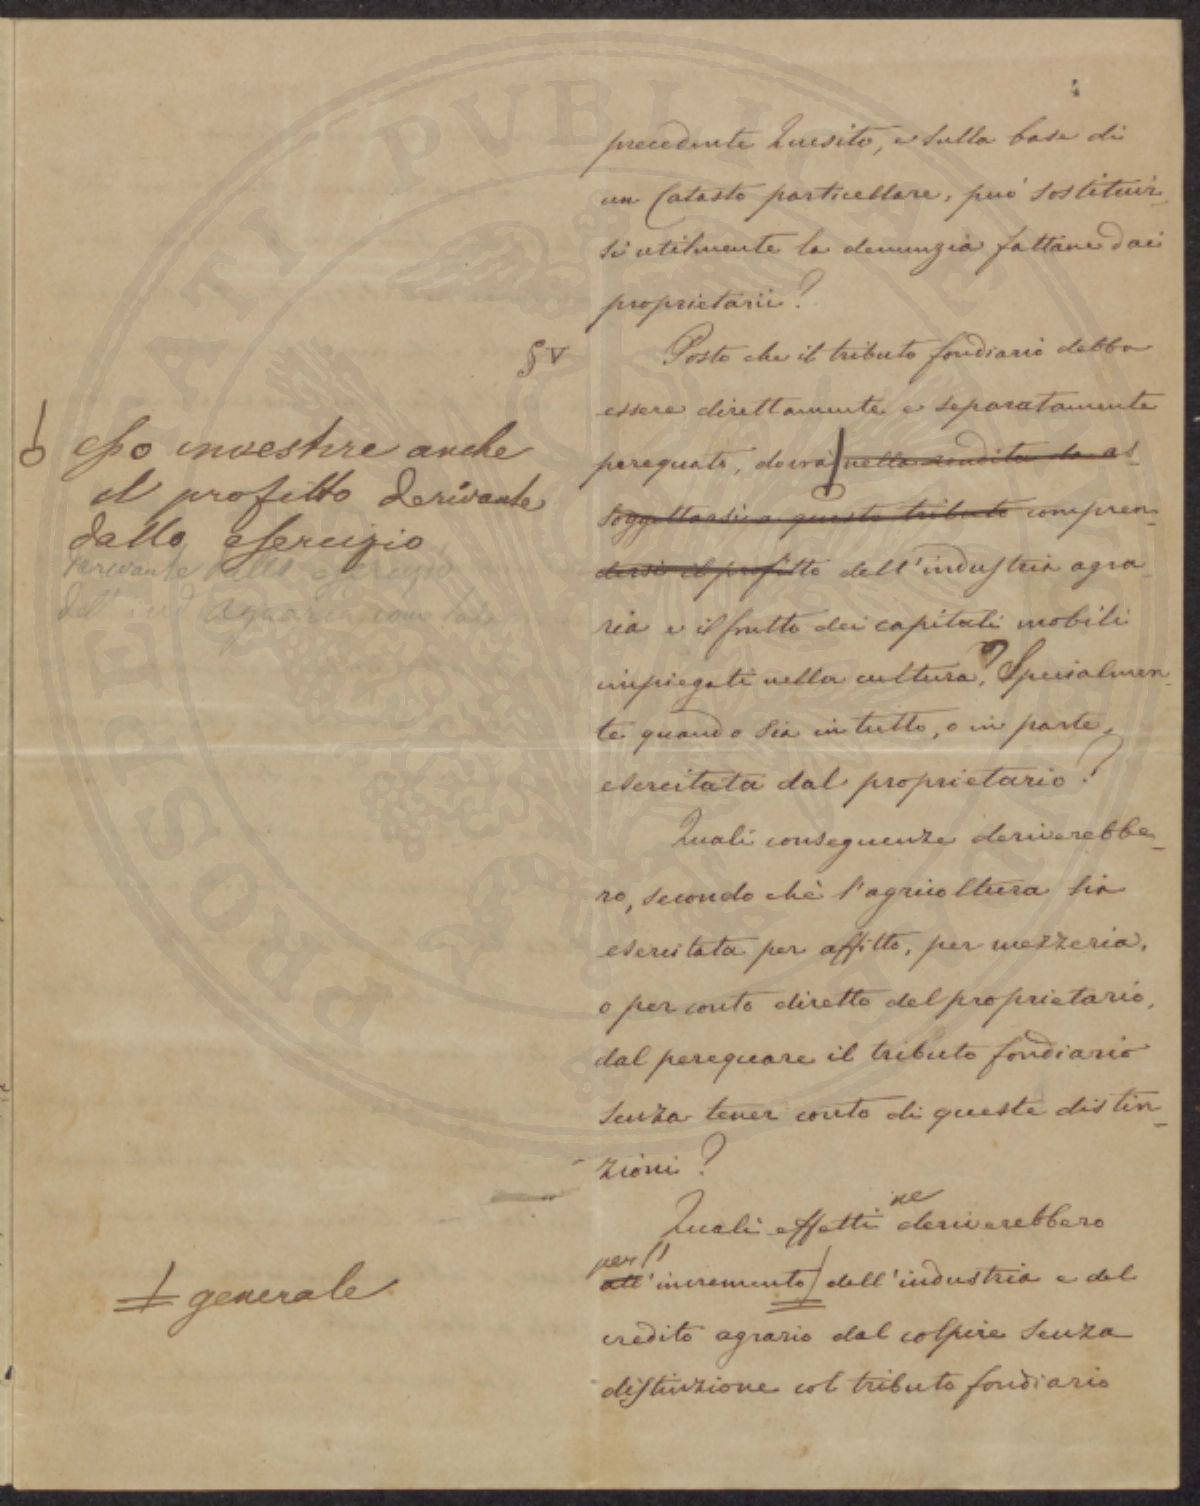 precedente Quesito, e sulla base di
un Catasto particellare, può sostituir-
si utilmente la denunzia fattane dai
proprietarii?
§ V
Posto che il tributo fondiario debba
essere direttamente e separatamente
perequato, dovrà nella rendita da as-
soggettarsi a questo tributo compren-
dersi il profitto dell'industria agra-
ria e il frutto dei capitali mobili
impiegati nella cultura? Specialmen-
te quando sia in tutto, o in parte,
esercitata dal proprietario?
Quali conseguenze deriverebbe-
ro, secondo chè l'agricoltura sia
esercitata per affitto, per mezzeria,
o per conto diretto del proprietario,
dal perequare il tributo fondiario
senza tener conto di queste distin-
zioni?
Quali effetti ne deriverebbero
per l'
all'incremento dell'industria e del
credito agrario dal colpire senza
distinzione col tributo fondiario
esso investire anche
il profitto derivante
dallo esercizio
derivante dallo esercizio
dell'ind agraria
generale
PROSPERITATI PUBLICAE